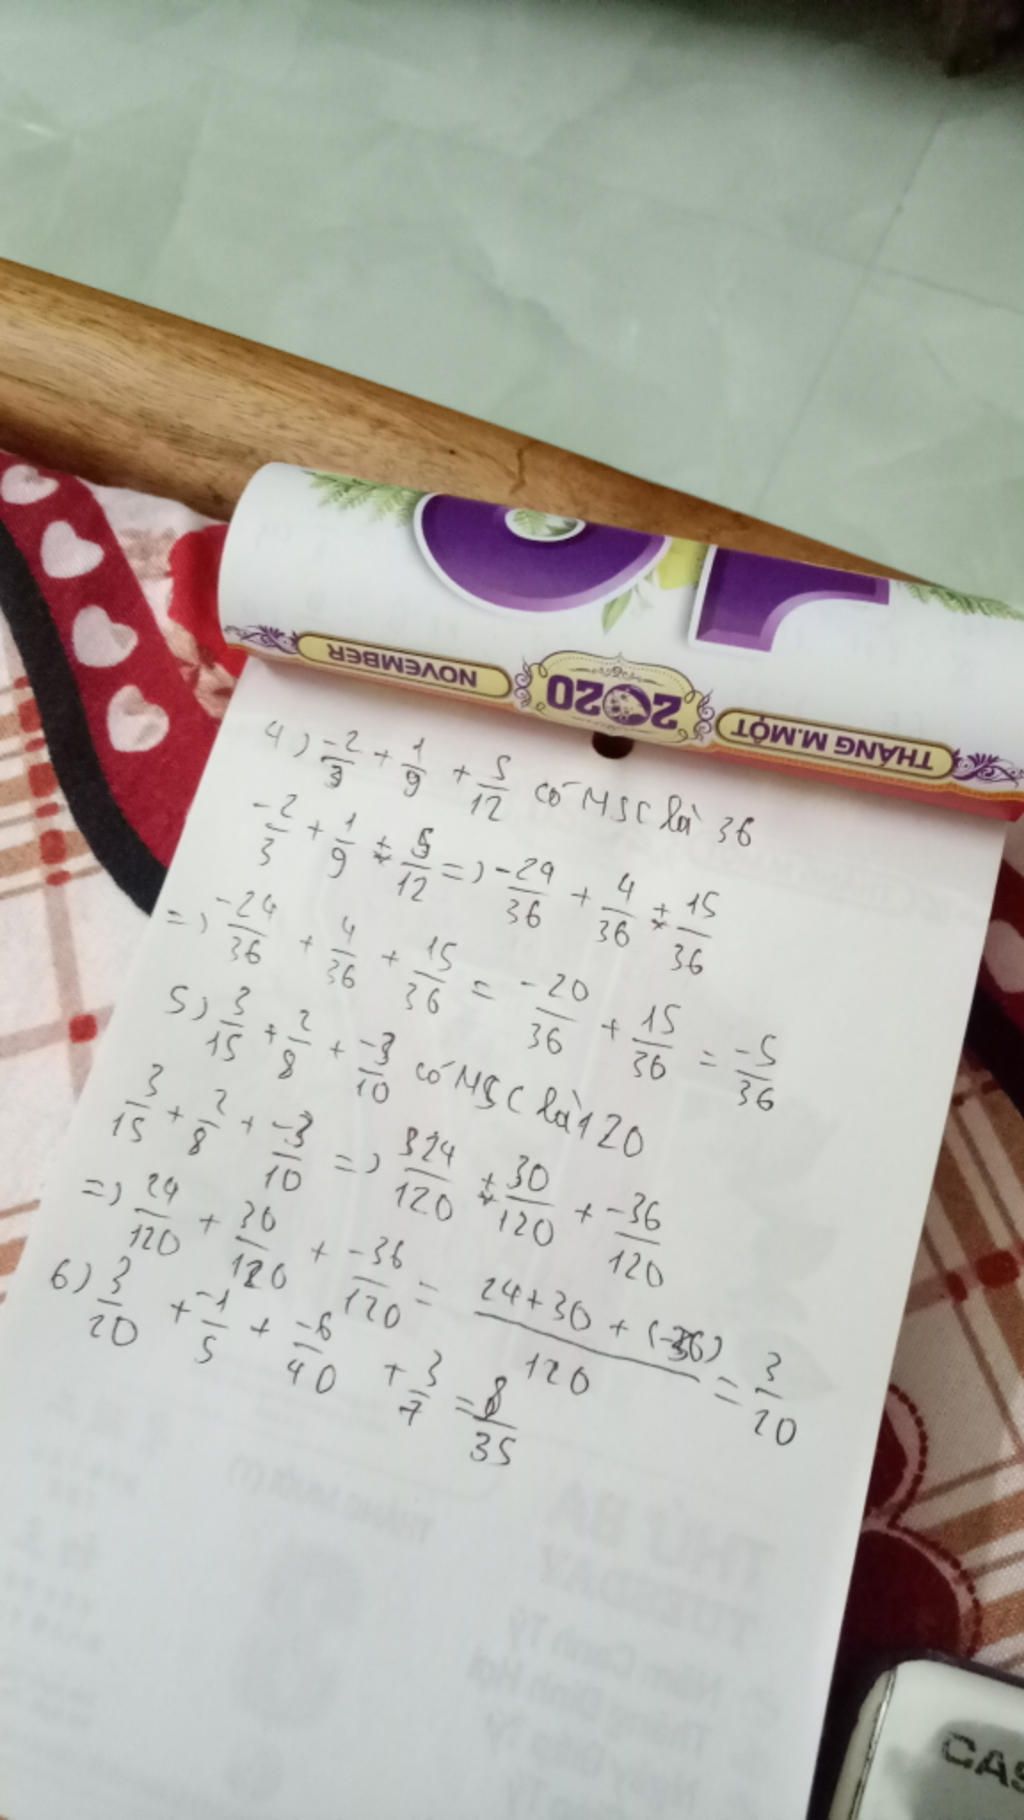 THÁNG M.MỘT 2020 NOVEMBER
10
4) -2/3 + 1/9 + 5/12 có MSC là 36
-2/3 + 1/9 + 5/12 =) -24/36 + 4/36 + 15/36
=) -24/36 + 4/36 + 15/36 = -20/36 + 15/36 = -5/36
5) 3/15 + 2/8 + -3/10 có MSC là 120
3/15 + 2/8 + -3/10 =) 24/120 + 30/120 + -36/120
=) 24/120 + 30/120 + -36/120 = 24+30+(-36)/120 = 3/20
6) 3/20 + -1/5 + -6/40 + 3/7 = 8/35
THỨ BA
TUESDAY
CAS